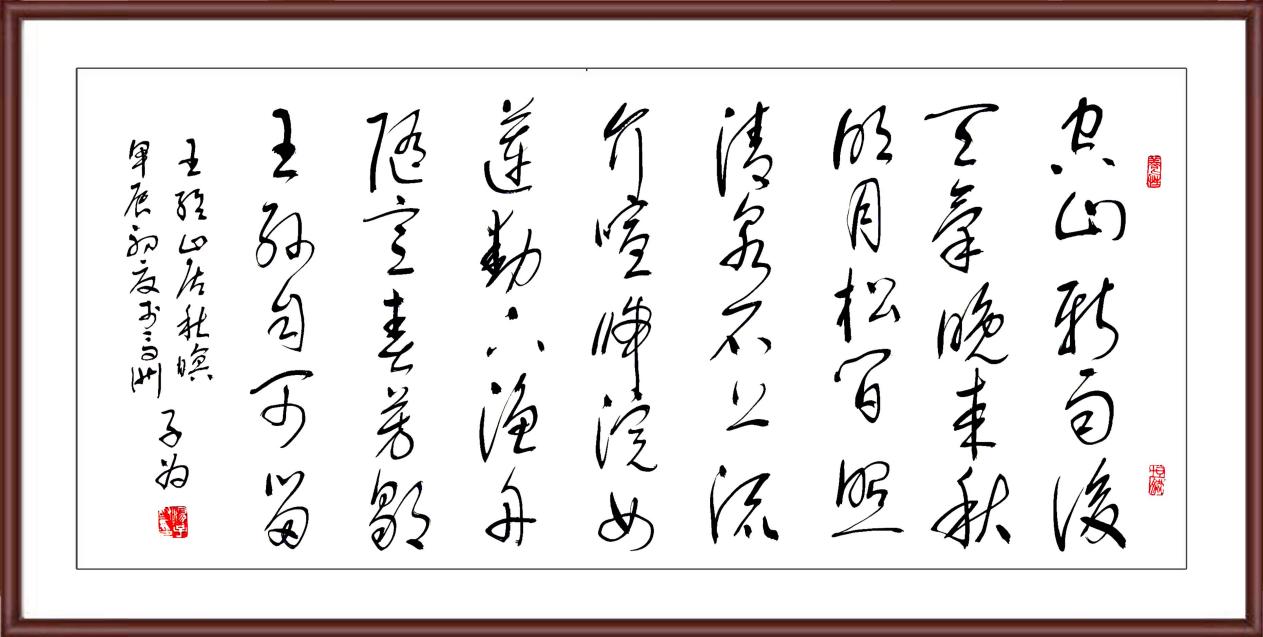 空山新雨後
天氣晚来秋
明月松间照
清泉石上流
竹喧歸浣女
蓮動下漁舟
隨意春芳歇
王孫自可留
王維山居秋暝
甲辰初夏于洲
子为